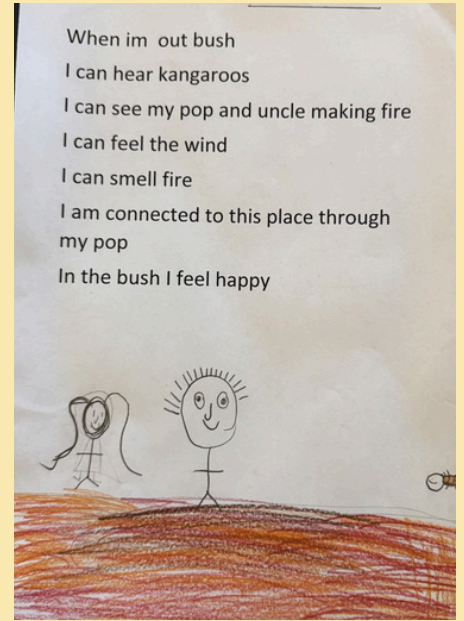 When im  out bush
I can hear kangaroos
I can see my pop and uncle making fire
I can feel the wind
I can smell fire
I am connected to this place through
my pop
In the bush I feel happy